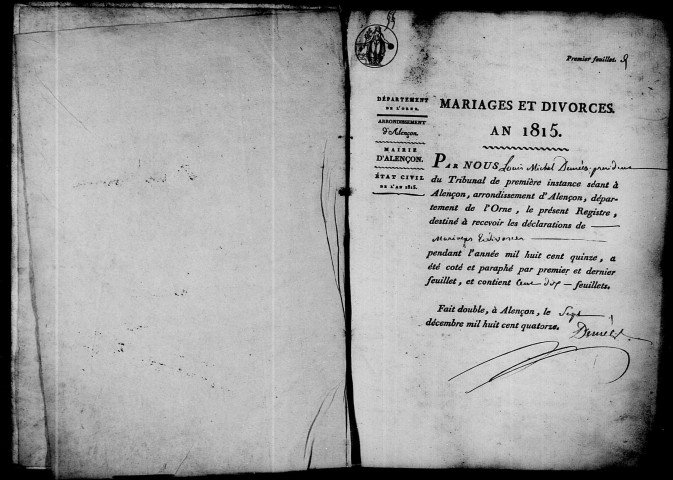 Premier feuillet.
DÉPARTEMENT
DE L'ORNE.
ARRONDISSEMENT
d'Alençon.
MAIRIE
D'ALENÇON.
ÉTAT CIVIL
DE L'AN 1815.
MARIAGES ET DIVORCES.
AN 1815.
PAR NOUS Louis Michel président
du Tribunal de première instance séant à
Alençon, arrondissement d'Alençon, dépar-
tement de l'Orne, le présent Registre,
destiné à recevoir les déclarations de
Mariages Et divorces
pendant l'année mil huit cent quinze, a
été coté et paraphé par premier et dernier
feuillet, et contient Cent dix feuillets.
Fait double, à Alençon, le Sept
décembre mil huit cent quatorze.